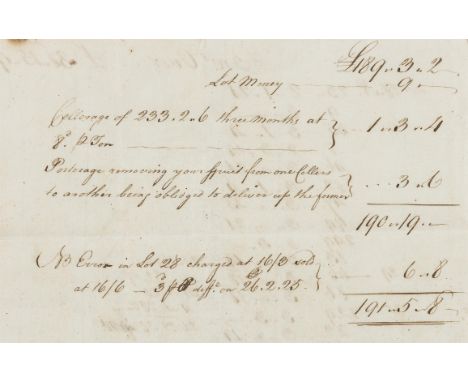 £189 " 3 " 2
Lot Money 9 "
Cellerage of 233.2.6 three months at
8d p Ton } 1 " 3 " 4
Porterage removing your spirit from one Celler
to another being obliged to deliver up the former } 3 " 6
190 " 19 "
NB Error in Lot 28 charged at 16/3 sold
at 16/6 — 3d diffe. on 26.2.25. } 6 " 8
191 " 5 " 8